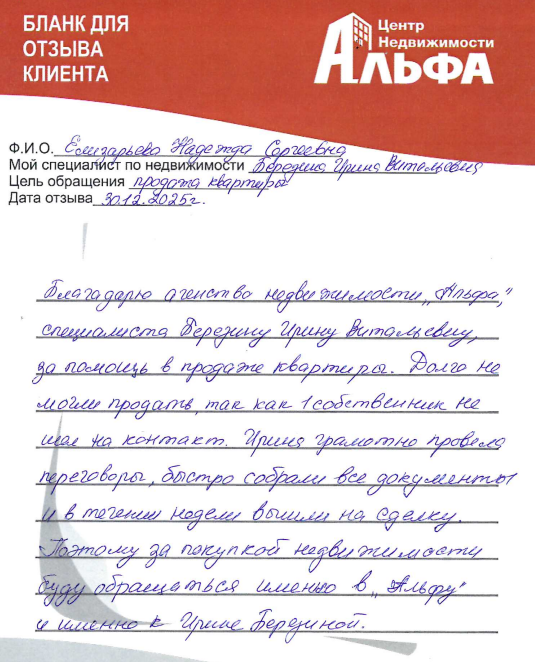 БЛАНК ДЛЯ
ОТЗЫВА
КЛИЕНТА
Центр
Недвижимости
АЛЬФА
Ф.И.О. Елизарьева Надежда Сергеевна
Мой специалист по недвижимости Березина Ирина Витальевна
Цель обращения продажа квартиры
Дата отзыва 30.12.2025г.
Благадарю агенство недвижимости „Альфа",
специалиста Березину Ирину Витальевну,
за помощь в продаже квартиры. Долго не
могли продать, так как 1 собственник не
шел на контакт. Ирина грамотно провела
переговоры, быстро собрали все документы
и в течении недели вышли на сделку.
Поэтому за покупкой недвижимости
буду обращаться именно в „Альфу"
и именно к Ирине Березиной.